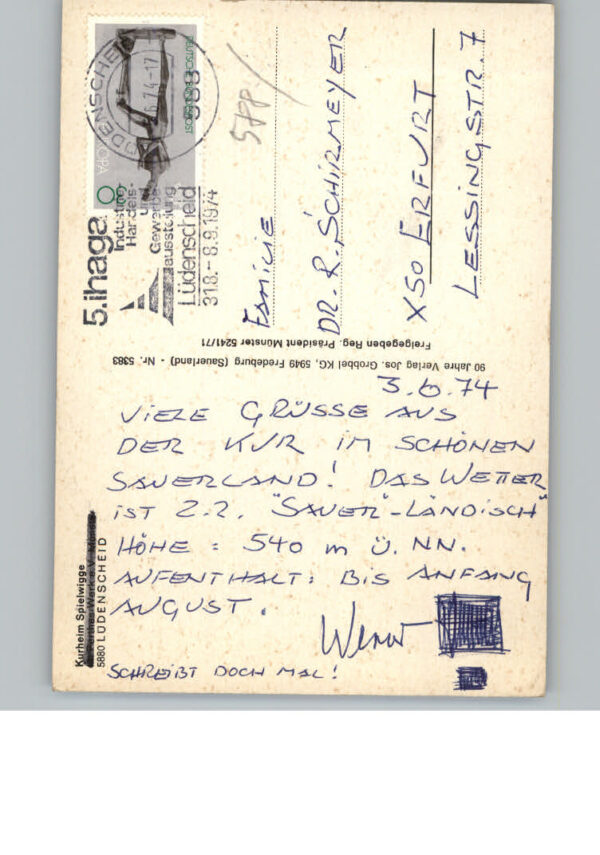 3.6.74
VIELE GRÜSSE AUS
DER KUR IM SCHÖNEN
SAUERLAND! DAS WETTER
IST Z.Z. "SAUER"-LÄNDISCH"
HÖHE: 540 m Ü. NN.
AUFENTHALT: BIS ANFANG
AUGUST.
Werner
SCHREIBT DOCH MAL!
Kurheim Spielwigge
5880 LÜDENSCHEID
90 Jahre Verlag Jos. Grobbel KG, 5949 Fredeburg (Sauerland) - Nr. 5383
Freigegeben Reg. Präsident Münster 5241/71
FAMILIE
DR. R. SCHIRMEYER
X50 ERFURT
LESSINGSTR. 7
5.ihaga
Industrie-
Handels-
und
Gewerbe-
ausstellung
Lüdenscheid
31.8.-8.9.1974
LÜDENSCHEID
DEUTSCHE BUNDESPOST
EUROPA